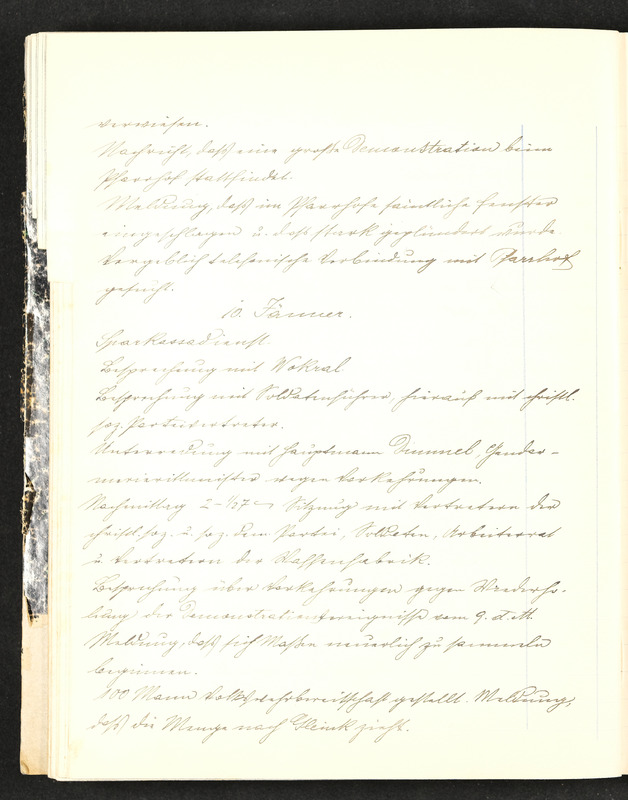 verwiesen.
Nachricht, daß eine große Demonstration beim
Pfarrhof stattfindet.
Meldung, daß im Pfarrhofe sämtliche Fenster
eingeschlagen u. dort stark geplündert wurde.
Vergeblich telefonische Verbindung mit Pfarrhof
gesucht.
10. Jänner.
Sparkassadienst
Besprechung mit Wokral
Besprechung mit Soldatenführer, hierauf mit christl.
soz. Parteivertreter.
Unterredung mit Hauptmann Dummel, Gendar-
merierittmeister wegen Vorkehrungen.
Nachmittag 2-½7 Sitzung mit Vertretern der
christl. soz. u. soz. dem. Partei, Soldaten, Arbeiterrat
u. Vertretern der Waffenfabrik.
Besprechung über Vorkehrungen gegen Wiederho-
lung der Demonstrationsereignisse vom 9. d. M.
Meldung, daß sich Maßen neuerlich zu sammeln
beginnen.
100 Mann Volkswehrbereitschaft gestellt. Meldung,
daß die Menge nach zieht.